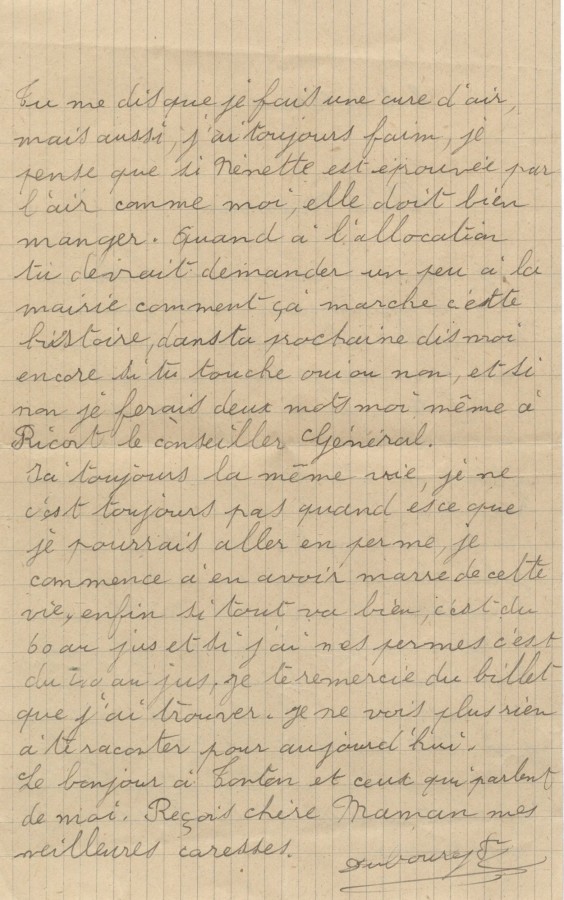 Tu me dis que je fais une cure d'air,
mais aussi, j'ai toujours faim, je
pense que si Nénette est éprouvée par
l'air comme moi, elle doit bien
manger. Quand à l'allocation
tu devrait demander un peu à la
mairie comment ça marche cette
histoire, dans ta prochaine dis moi
encore si tu touche oui ou non, et si
non je ferais deux mots moi même à
Ricort le conseiller Général.
J'ai toujours la même vie, je ne
c'est toujours pas quand esce que
je pourrais aller en perme, je
commence à en avoir marre de cette
vie, enfin si tout va bien, c'est du
60 au jus et si j'ai mes permes c'est
du 20 au jus, je te remercie du billet
que j'ai trouver. je ne vois plus rien
à te raconter pour aujourd'hui.
Le bonjour à Tonton et ceux qui parlent
de moi. Reçois chère Maman mes
meilleures caresses.